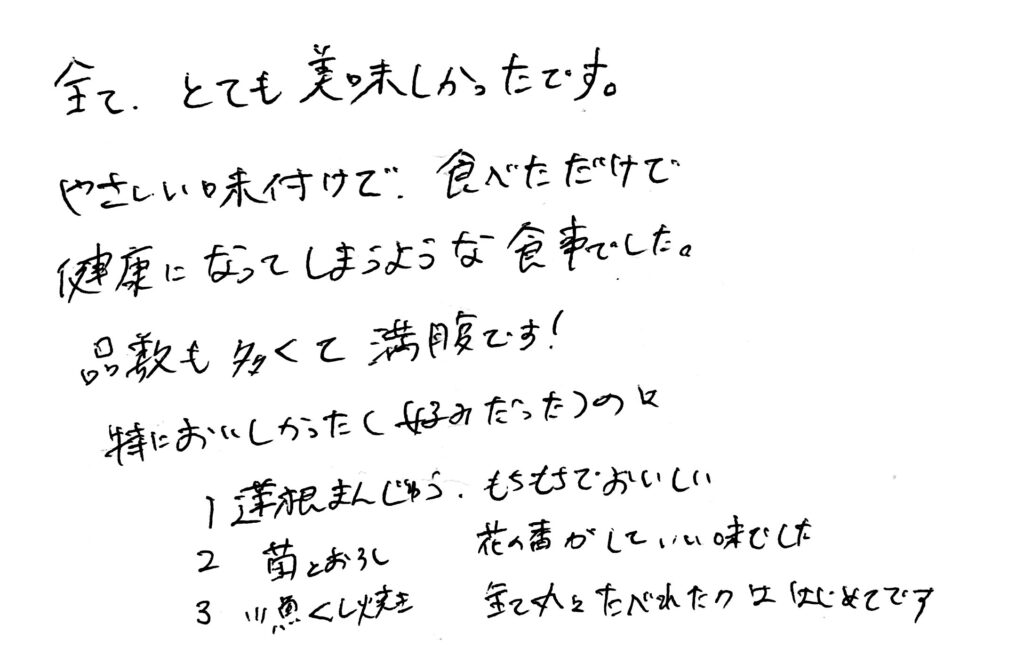 全て、とても美味しかったです。
やさしい味付けで、食べただけで
健康になってしまうような食事でした。
品数も多くて満腹です!
特においしかった(好みだった)のは
1 蓮根まんじゅう、もちもちでおいしい
2 菌とおろし 花の香がしていい味でした
3 川魚くし焼き 全て丸とたべれたのははじめてです